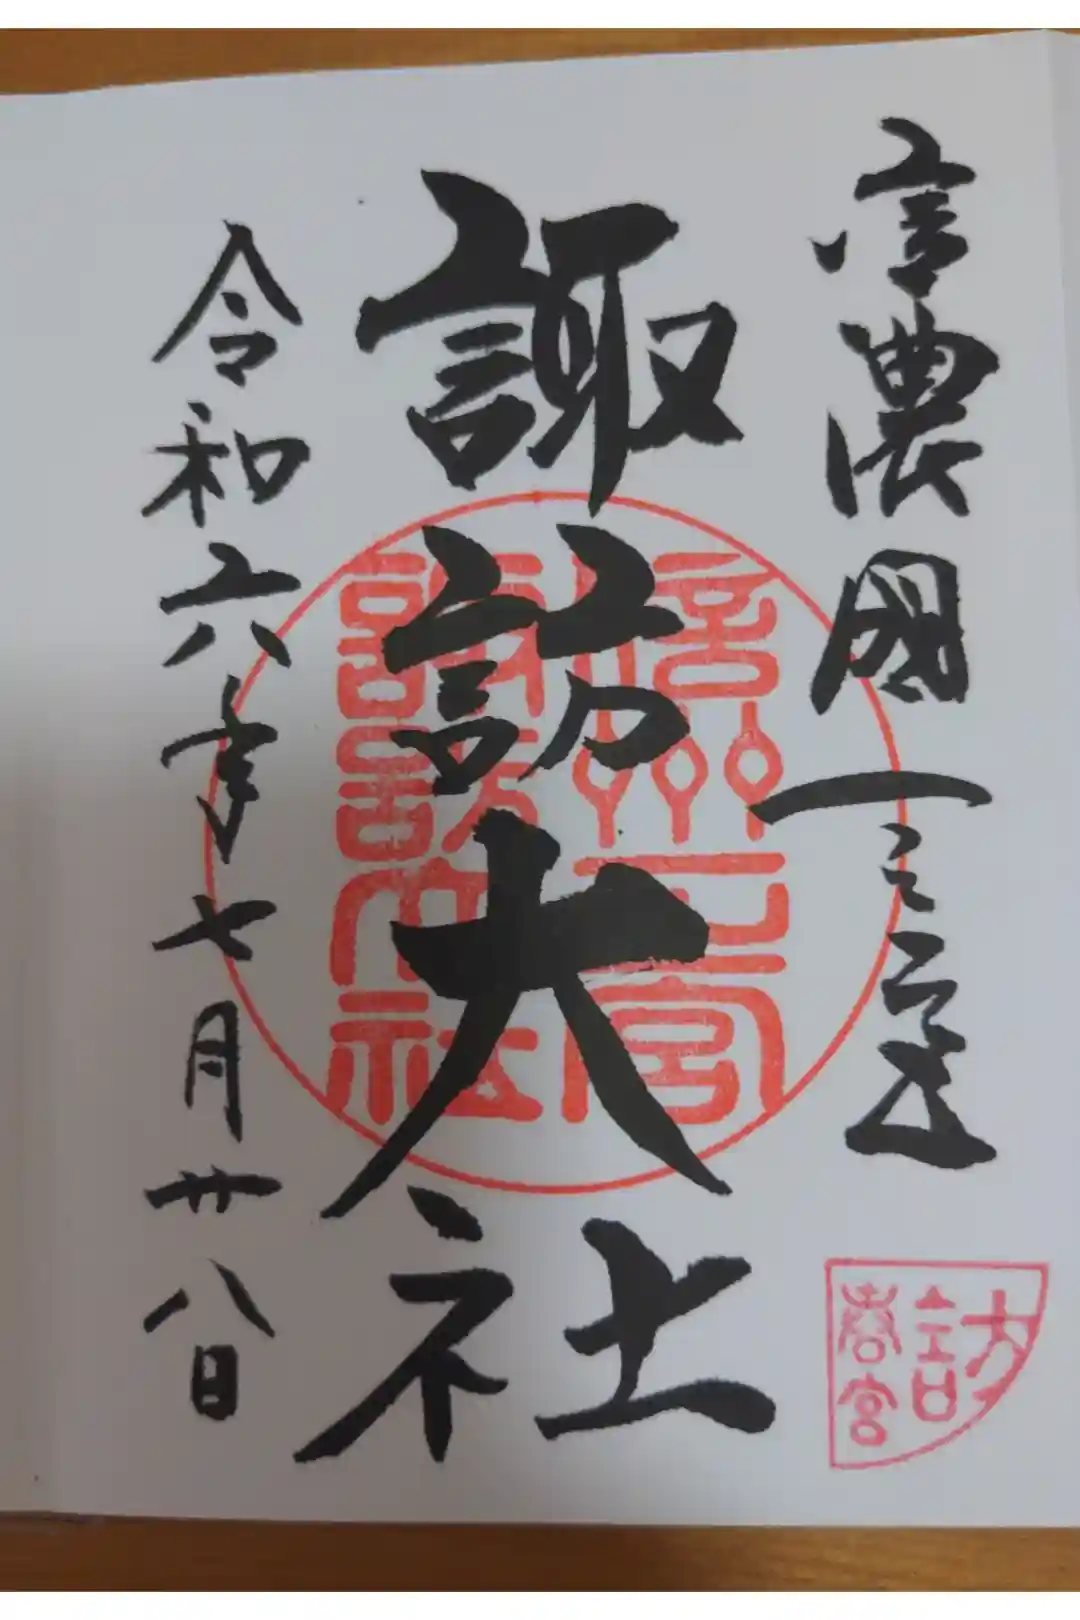 信濃國一之宮
諏訪大社
令和六年七月廿八日
信州一之宮
諏訪大社
訪
春宮